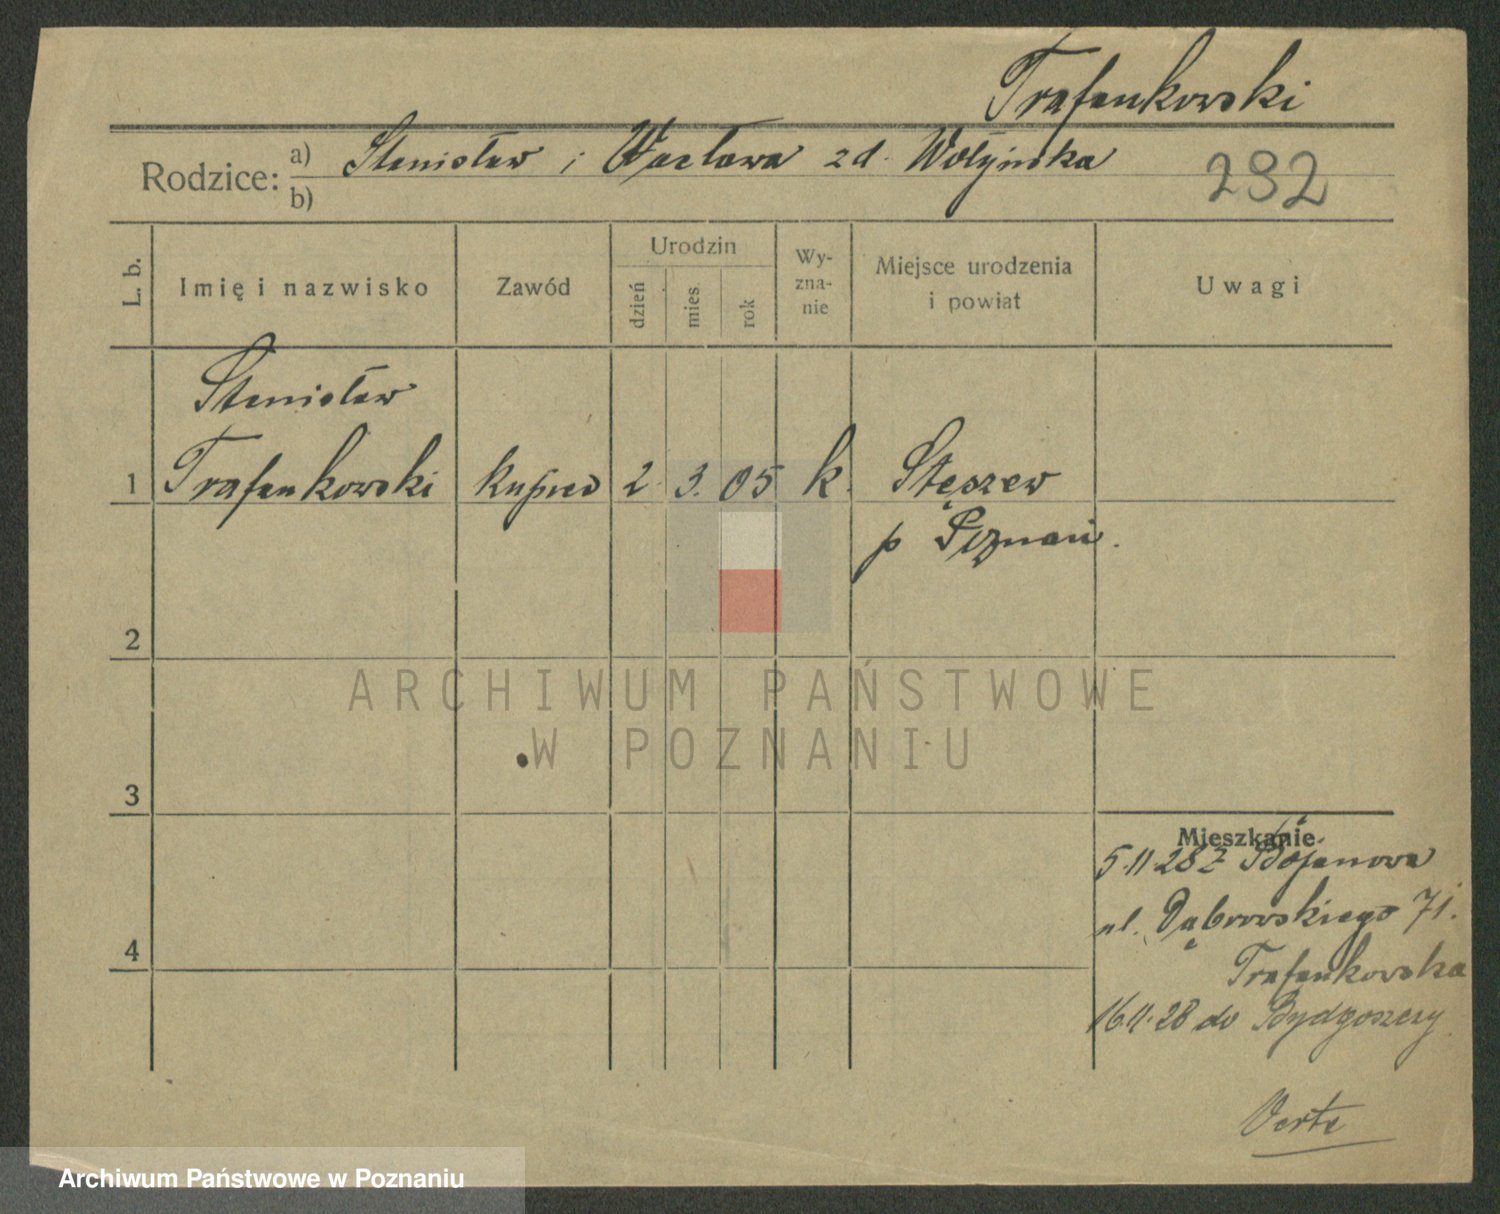 Trafankowski
Rodzice: a) Stanisław i Wacława zd. Wołyńska
b)
292
L. b.
Imię i nazwisko
Zawód
Urodzin
dzień
mies.
rok
Wy-
zna-
nie
Miejsce urodzenia
i powiat
Uwagi
Stanisław
1 Trafankowski kupiec 2. 3. 05 k. Stęszew
p Poznań.
2
ARCHIWUM PAŃSTWOWE
W POZNANIU
3
Mieszkanie
5.11 28 z Bojanowa
ul. Dąbrowskiego 71.
Trafankowska
4
16.11.28 do Bydgoszczy
Verte
Archiwum Państwowe w Poznaniu